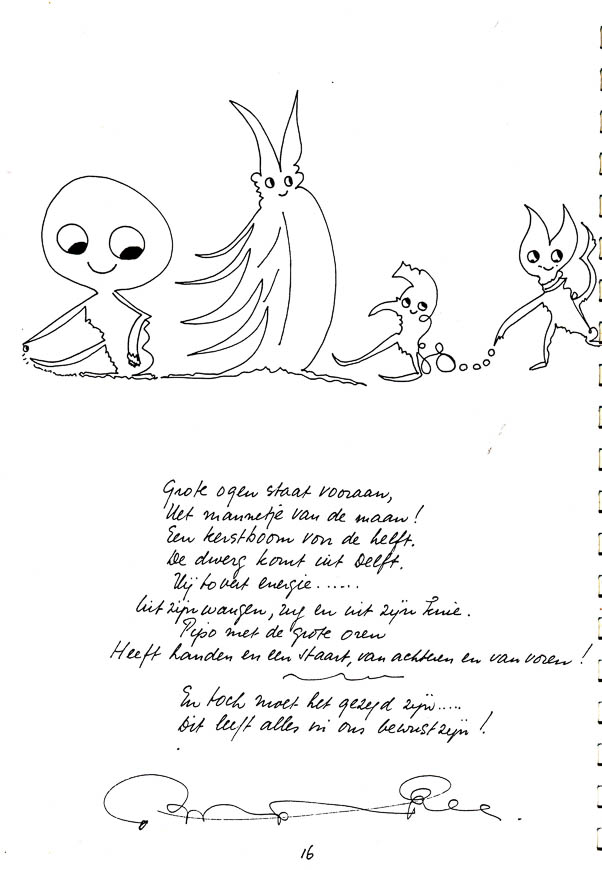 Grote ogen staat vooraan,
Het mannetje van de maan!
Een kerstboom voor de helft.
De dwerg komt uit Delft.
Hij tovert energie......
Uit zijn wangen, rug en uit zijn knie.
Pipo met de grote oren
Heeft handen en een staart, van achteren en van voren!
En toch moet het gezegd zijn.....
Dit leeft alles in ons bewustzijn!
16